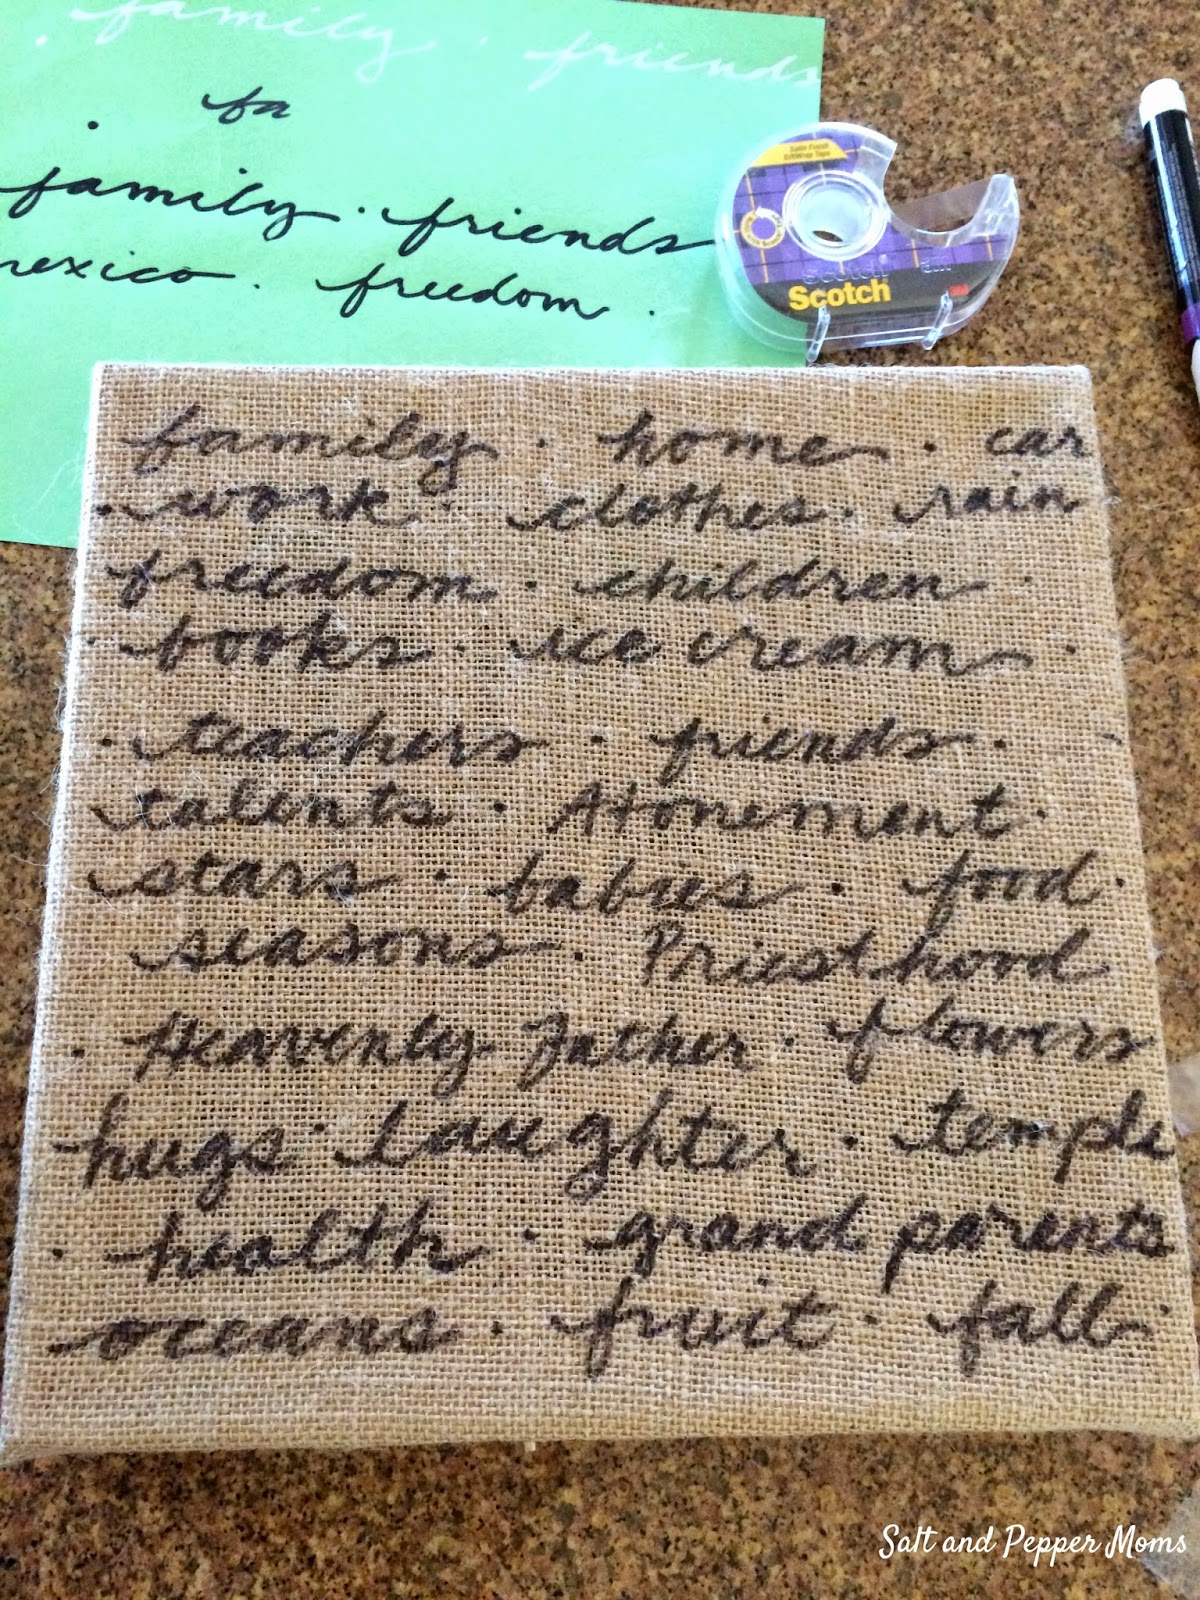 . family . friends
fa
.
family . friends
mexico . freedom .
Satin Finish
GiftWrap Tape
Scotch
3M
family . home . car
. work . clothes . rain
freedom . children .
books . ice cream .
. teachers . friends .
talents . Atonement .
stars . babies . food .
seasons . Priesthood
. Heavenly Father . flowers
hugs . Laughter . temple
. health . grandparents
oceans . fruit . fall .
Salt and Pepper Moms